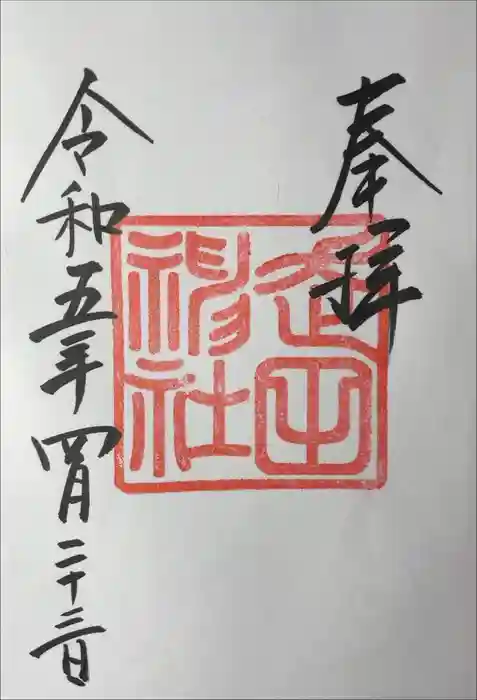 奉拝
神社
令和五年四月二十三日